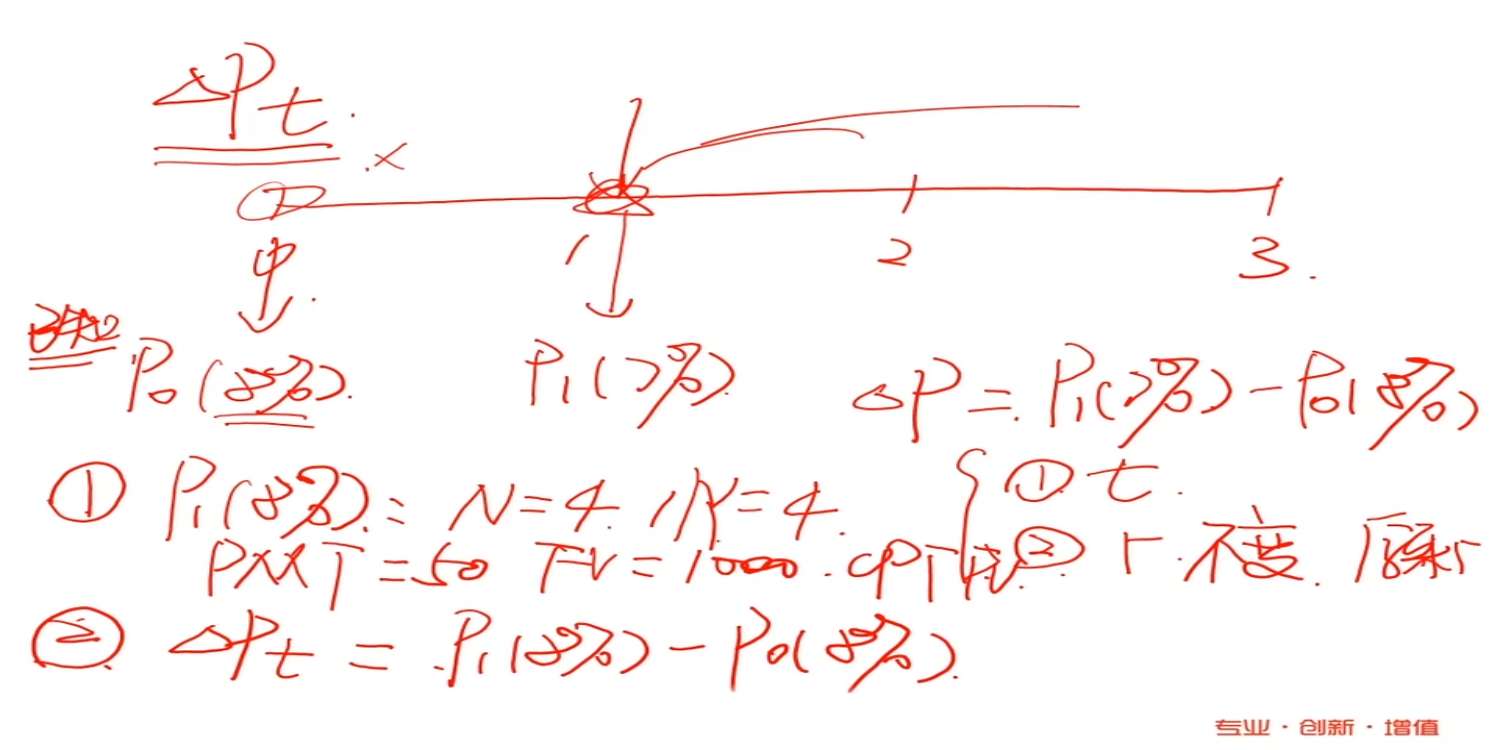 ΔPt.
1 2 3.
已知 P₀(8%). P₁(7%) ΔP = P₁(7%) - P₀(8%)
① P₁(8%): N=4. I/Y=4. { ① t.
PMT=50 FV=1000. CPT PV. ② r. 不变. 原来r
② ΔPt = P₁(8%) - P₀(8%).
专业·创新·增值